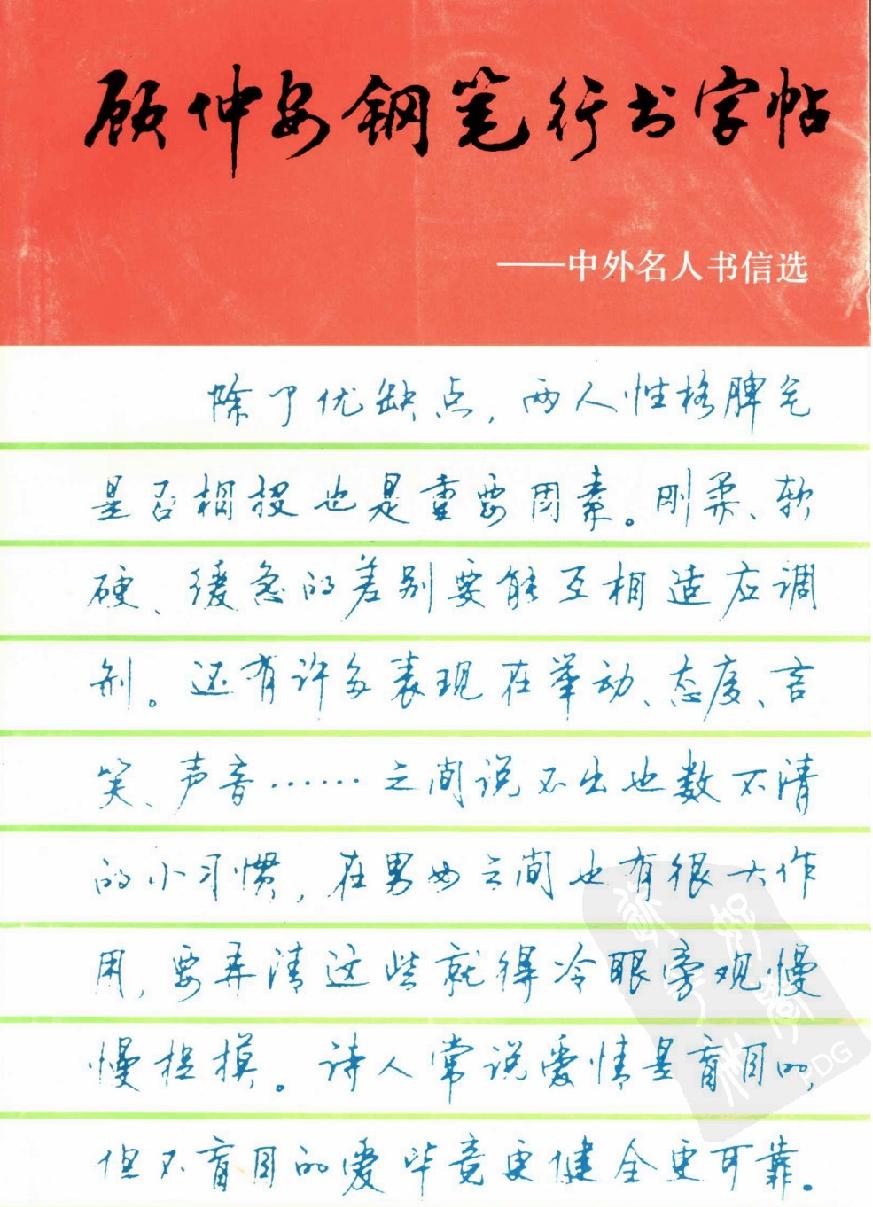 顾仲安钢笔行书字帖
——中外名人书信选
除了优缺点,两人性格脾气
是否相投也是重要因素。刚柔、软
硬、缓急的差别要能互相适应调
剂。还有许多表现在举动、态度、言
笑、声音……之间说不出也数不清
的小习惯,在男女之间也有很大作
用,要弄清这些就得冷眼旁观慢
慢捉摸。诗人常说爱情是盲目的,
但不盲目的爱毕竟更健全更可靠。
PDG